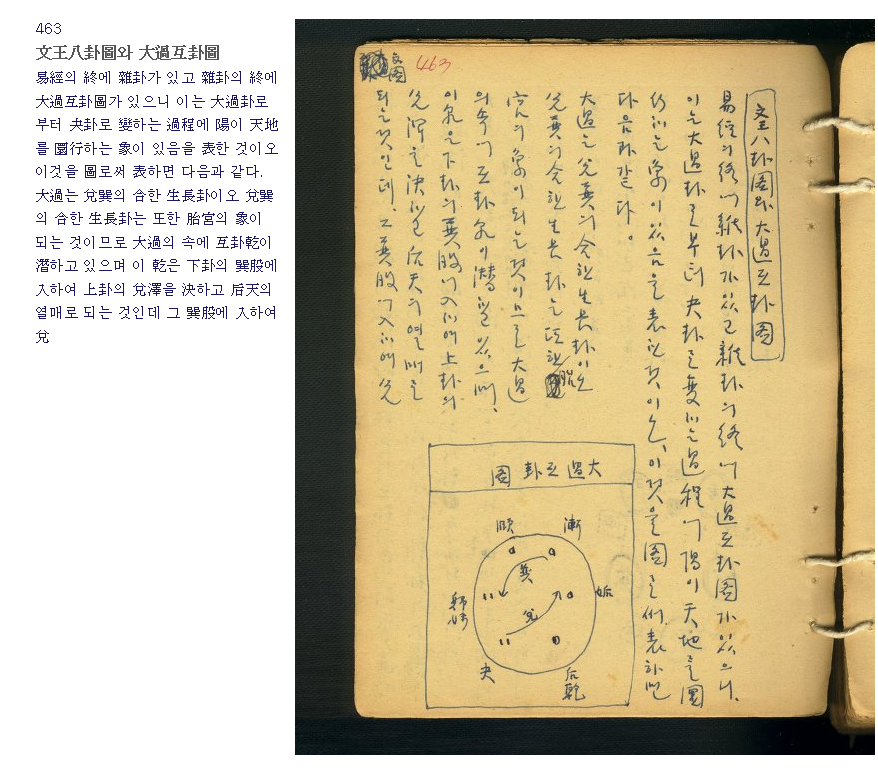 463
文王八卦圖와 大過互卦圖
易經의 終에 雜卦가 있고 雜卦의 終에
大過互卦圖가 있으니 이는 大過卦로
부터 夬卦로 變하는 過程에 陽이 天地
를 圜行하는 象이 있음을 表한 것이오
이것을 圖로써 表하면 다음과 같다.
大過는 兌巽의 合한 生長卦이오 兌巽
의 合한 生長卦는 또한 胎宮의 象이
되는 것이므로 大過의 속에 互卦乾이
潛하고 있으며 이 乾은 下卦의 巽股에
入하여 上卦의 兌澤을 決하고 后天의
열매로 되는 것인데 그 巽股에 入하여
兌
文圖
463
文王八卦圖와 大過互卦圖
易經의 終에 雜卦가 있고 雜卦의 終에 大過互卦圖가 있으니,
이는 大過卦로부터 夬卦로 變하는 過程에 陽이 天地를 圜
行하는 象이 있음을 表한 것이오, 이것을 圖로써 表하면
다음과 같다。
大過는 兌巽의 合한 生長卦이오
兌巽의 合한 生長卦는 또한 胎
宮의 象이 되는 것이므로 大過
의 속에 互卦乾이 潛하고 있으며,
이 乾은 下卦의 巽股에 入하여 上卦의
兌澤을 決하고 后天의 열매로
되는 것인데, 그 巽股에 入하여 兌
大過互卦圖
漸
頤
巽
姤
歸妹
兌
夬
后乾